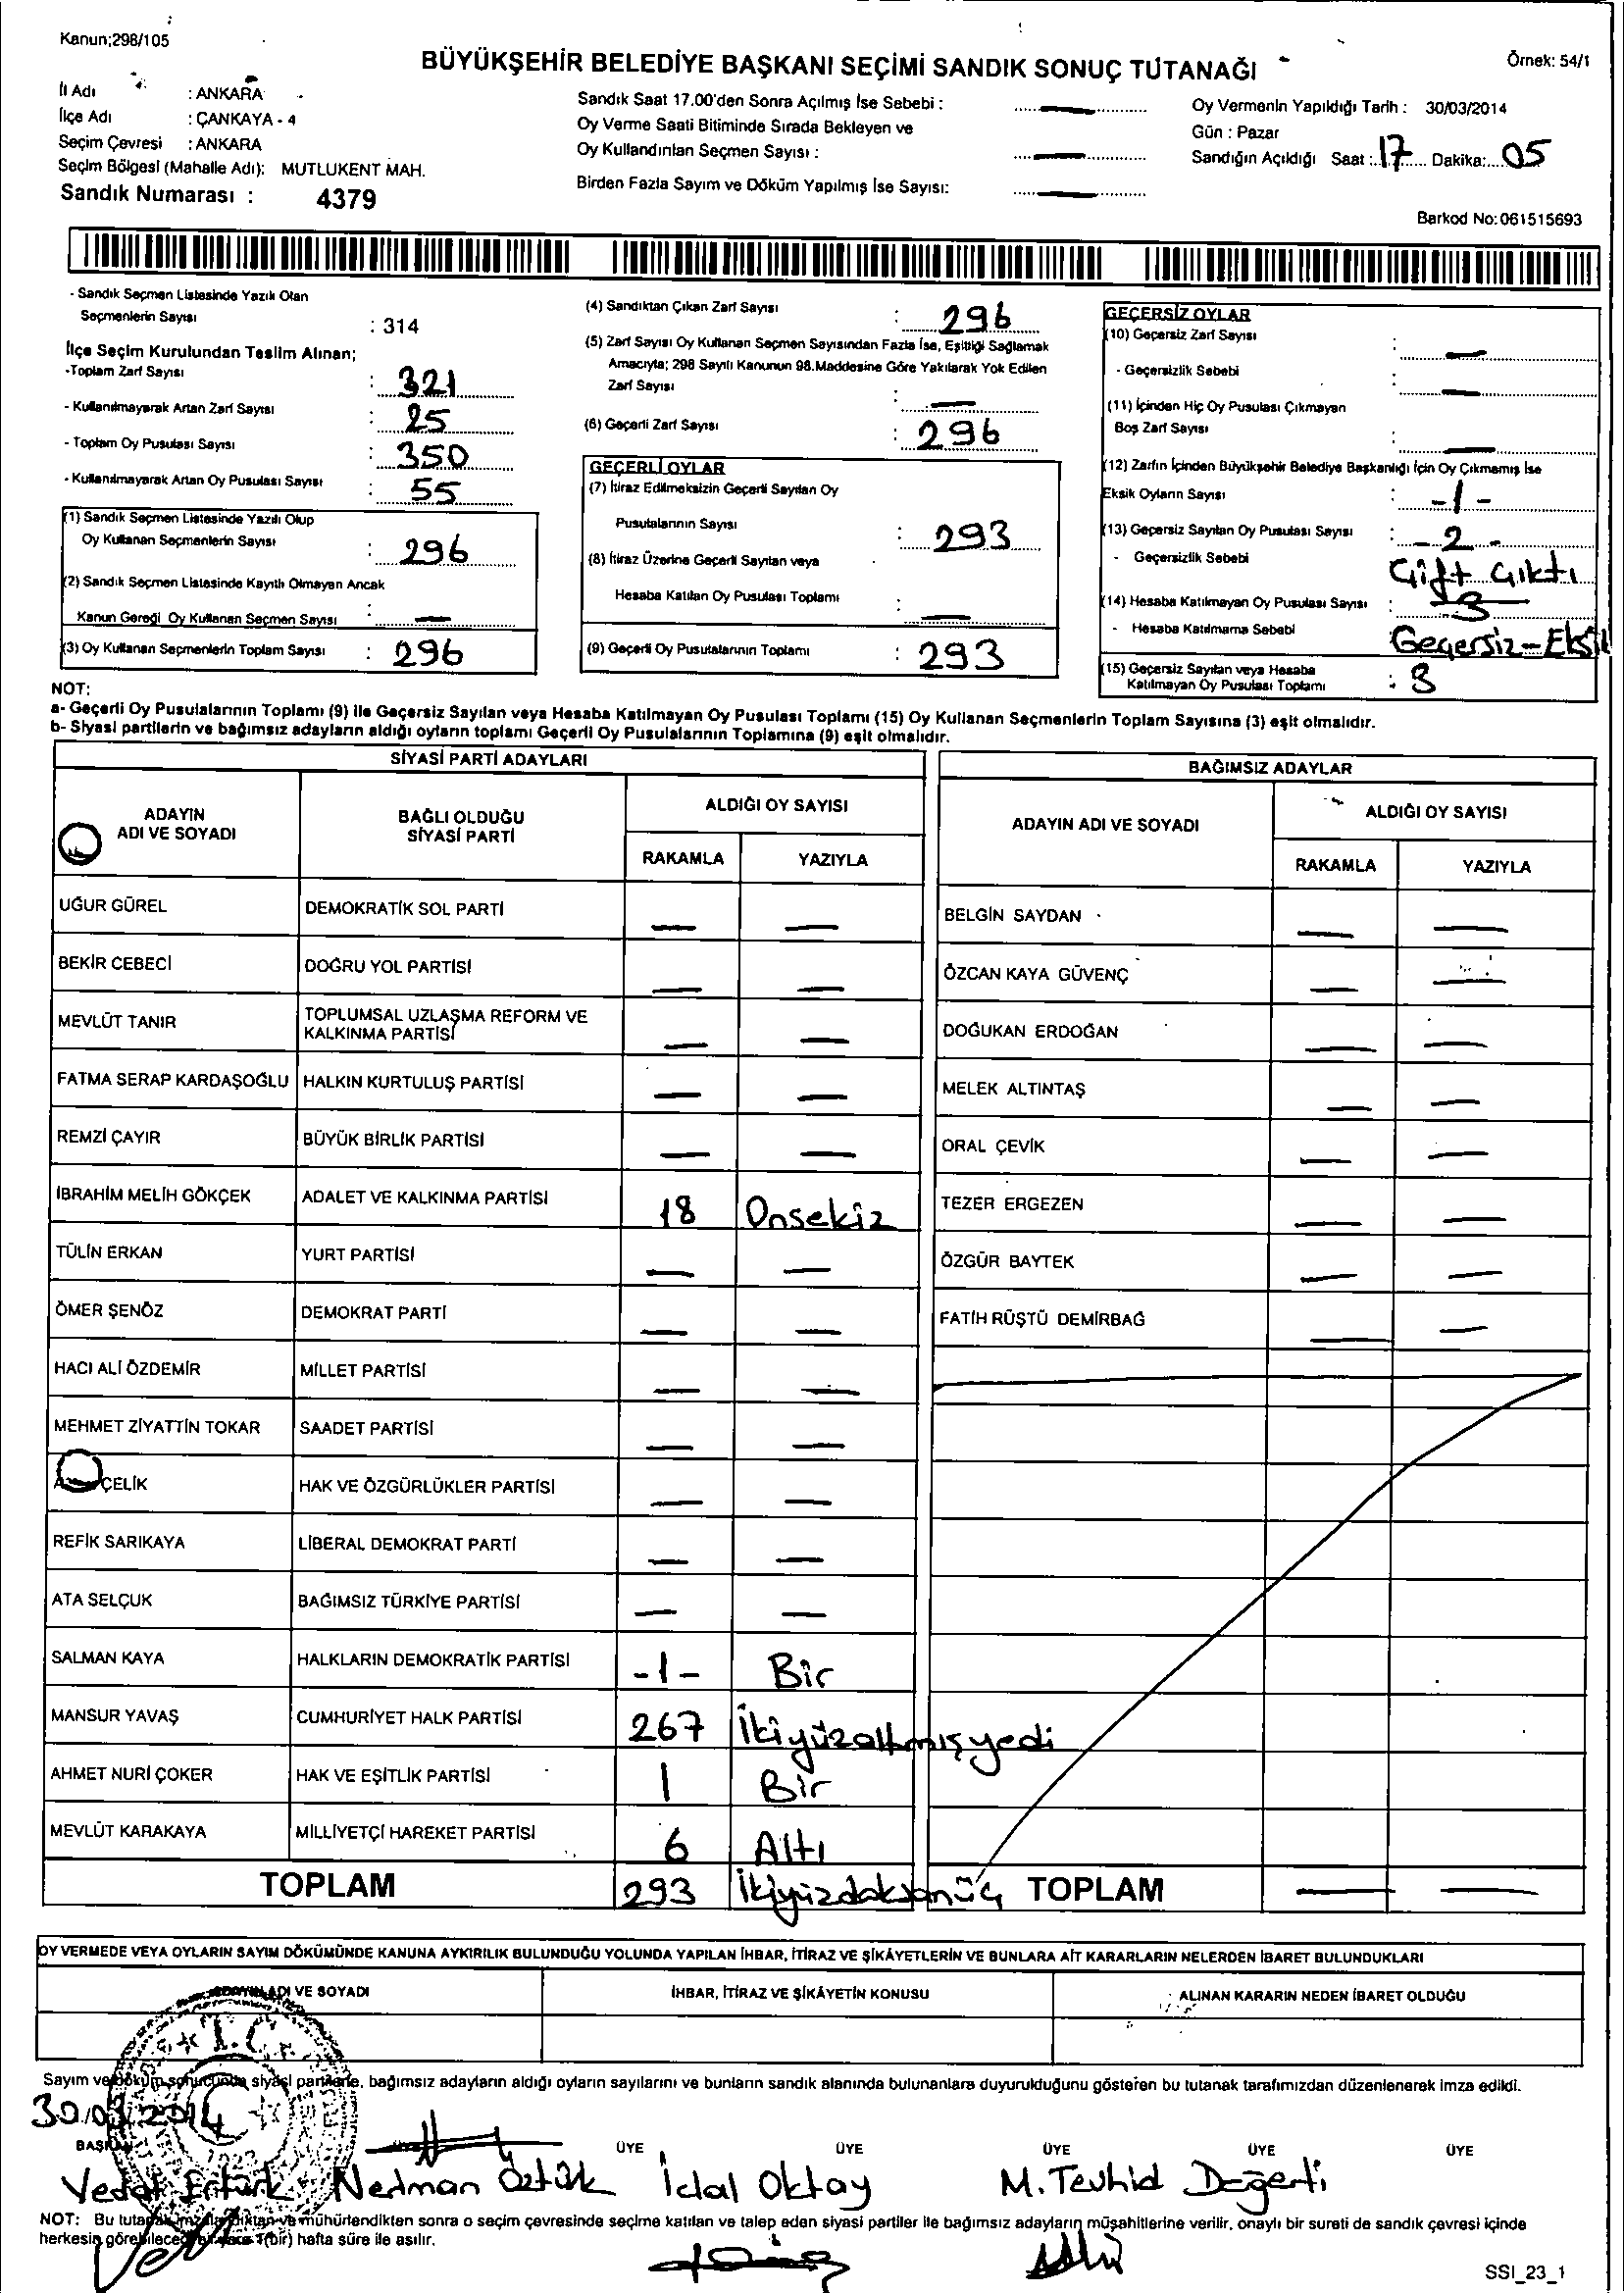 Kanun;298/105
BÜYÜKŞEHİR BELEDİYE BAŞKANI SEÇİMİ SANDIK SONUÇ TUTANAĞI
Örnek: 54/1
İl Adı : ANKARA
İlçe Adı : ÇANKAYA - 4
Seçim Çevresi : ANKARA
Seçim Bölgesi (Mahalle Adı): MUTLUKENT MAH.
Sandık Numarası : 4379
Sandık Saat 17.00'den Sonra Açılmış İse Sebebi : —
Oy Verme Saati Bitiminde Sırada Bekleyen ve
Oy Kullandırılan Seçmen Sayısı : —
Birden Fazla Sayım ve Döküm Yapılmış İse Sayısı: —
Oy Vermenin Yapıldığı Tarih : 30/03/2014
Gün : Pazar
Sandığın Açıldığı Saat : 17 Dakika: 05
Barkod No: 061515693
- Sandık Seçmen Listesinde Yazılı Olan
Seçmenlerin Sayısı : 314
İlçe Seçim Kurulundan Teslim Alınan;
-Toplam Zarf Sayısı : 321
- Kullanılmayarak Artan Zarf Sayısı : 25
- Toplam Oy Pusulası Sayısı : 350
- Kullanılmayarak Artan Oy Pusulası Sayısı : 55
(1) Sandık Seçmen Listesinde Yazılı Olup
Oy Kullanan Seçmenlerin Sayısı : 296
(2) Sandık Seçmen Listesinde Kayıtlı Olmayan Ancak
Kanun Gereği Oy Kullanan Seçmen Sayısı : —
(3) Oy Kullanan Seçmenlerin Toplam Sayısı : 296
(4) Sandıktan Çıkan Zarf Sayısı : 296
(5) Zarf Sayısı Oy Kullanan Seçmen Sayısından Fazla İse, Eşitliği Sağlamak
Amacıyla; 298 Sayılı Kanunun 98.Maddesine Göre Yakılarak Yok Edilen
Zarf Sayısı : —
(6) Geçerli Zarf Sayısı : 296
GEÇERLİ OYLAR
(7) İtiraz Edilmeksizin Geçerli Sayılan Oy
Pusulalarının Sayısı : 293
(8) İtiraz Üzerine Geçerli Sayılan veya
Hesaba Katılan Oy Pusulası Toplamı : —
(9) Geçerli Oy Pusulalarının Toplamı : 293
GEÇERSİZ OYLAR
(10) Geçersiz Zarf Sayısı : —
- Geçersizlik Sebebi : —
(11) İçinden Hiç Oy Pusulası Çıkmayan
Boş Zarf Sayısı : —
(12) Zarfın İçinden Büyükşehir Belediye Başkanlığı İçin Oy Çıkmamış İse
Eksik Oyların Sayısı : -1-
(13) Geçersiz Sayılan Oy Pusulası Sayısı : -2-
- Geçersizlik Sebebi Çift çıktı
(14) Hesaba Katılmayan Oy Pusulası Sayısı : 3
- Hesaba Katılmama Sebebi Geçersiz-Eksik
(15) Geçersiz Sayılan veya Hesaba
Katılmayan Oy Pusulası Toplamı : 3
NOT:
a- Geçerli Oy Pusulalarının Toplamı (9) ile Geçersiz Sayılan veya Hesaba Katılmayan Oy Pusulası Toplamı (15) Oy Kullanan Seçmenlerin Toplam Sayısına (3) eşit olmalıdır.
b- Siyasi partilerin ve bağımsız adayların aldığı oyların toplamı Geçerli Oy Pusulalarının Toplamına (9) eşit olmalıdır.
SİYASİ PARTİ ADAYLARI
ADAYIN ADI VE SOYADI BAĞLI OLDUĞU SİYASİ PARTİ ALDIĞI OY SAYISI
RAKAMLA YAZIYLA
UĞUR GÜREL DEMOKRATİK SOL PARTİ — —
BEKİR CEBECİ DOĞRU YOL PARTİSİ — —
MEVLÜT TANIR TOPLUMSAL UZLAŞMA REFORM VE KALKINMA PARTİSİ — —
FATMA SERAP KARDAŞOĞLU HALKIN KURTULUŞ PARTİSİ — —
REMZİ ÇAYIR BÜYÜK BİRLİK PARTİSİ — —
İBRAHİM MELİH GÖKÇEK ADALET VE KALKINMA PARTİSİ 18 Onsekiz
TÜLİN ERKAN YURT PARTİSİ — —
ÖMER ŞENÖZ DEMOKRAT PARTİ — —
HACI ALİ ÖZDEMİR MİLLET PARTİSİ — —
MEHMET ZİYATTİN TOKAR SAADET PARTİSİ — —
ÇELİK HAK VE ÖZGÜRLÜKLER PARTİSİ — —
REFİK SARIKAYA LİBERAL DEMOKRAT PARTİ — —
ATA SELÇUK BAĞIMSIZ TÜRKİYE PARTİSİ — —
SALMAN KAYA HALKLARIN DEMOKRATİK PARTİSİ -1- Bir
MANSUR YAVAŞ CUMHURİYET HALK PARTİSİ 267 İkiyüzaltmışyedi
AHMET NURİ ÇOKER HAK VE EŞİTLİK PARTİSİ 1 Bir
MEVLÜT KARAKAYA MİLLİYETÇİ HAREKET PARTİSİ 6 Altı
TOPLAM 293 İkiyüzdoksanüç
BAĞIMSIZ ADAYLAR
ADAYIN ADI VE SOYADI ALDIĞI OY SAYISI
RAKAMLA YAZIYLA
BELGİN SAYDAN — —
ÖZCAN KAYA GÜVENÇ — —
DOĞUKAN ERDOĞAN — —
MELEK ALTINTAŞ — —
ORAL ÇEVİK — —
TEZER ERGEZEN — —
ÖZGÜR BAYTEK — —
FATİH RÜŞTÜ DEMİRBAĞ — —
TOPLAM — —
OY VERMEDE VEYA OYLARIN SAYIM DÖKÜMÜNDE KANUNA AYKIRILIK BULUNDUĞU YOLUNDA YAPILAN İHBAR, İTİRAZ VE ŞİKÂYETLERİN VE BUNLARA AİT KARARLARIN NELERDEN İBARET BULUNDUKLARI
ADI VE SOYADI İHBAR, İTİRAZ VE ŞİKÂYETİN KONUSU ALINAN KARARIN NEDEN İBARET OLDUĞU
T.C.
Sayım ve döküm sonucunda siyasi partilerle, bağımsız adayların aldığı oyların sayılarını ve bunların sandık alanında bulunanlara duyurulduğunu gösteren bu tutanak tarafımızdan düzenlenerek imza edildi.
30.03.2014
BAŞKAN ÜYE ÜYE ÜYE ÜYE ÜYE
Vedat Ertürk Neriman Öztürk İclal Oktay M. Tevhid Değerli
NOT: Bu tutanak imzalandıktan ve mühürlendikten sonra o seçim çevresinde seçime katılan ve talep eden siyasi partiler ile bağımsız adayların müşahitlerine verilir, onaylı bir sureti de sandık çevresi içinde
herkesin görebileceği bir yere 1(bir) hafta süre ile asılır.
SSI_23_1